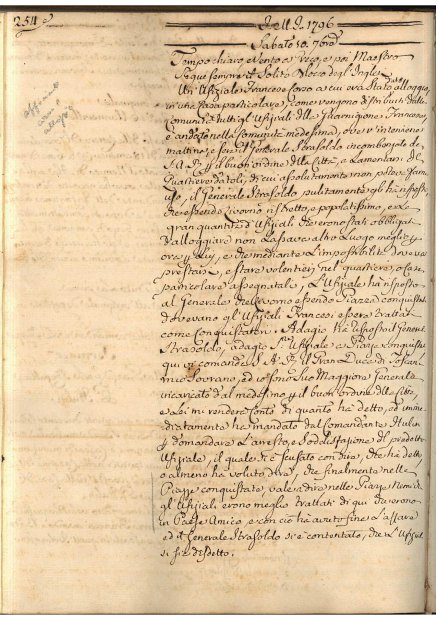 254
A dì 1796
Sabato 10. 7bre
Tempo chiaro, e Vento a e poi Maestro
Segue sempre il Solito Blocco degl' Inglesi
Un Ufiziale Francese Corso a cui era stato alloggio
in una Casa particolare, come vengono distribuiti dalla
Comunità tutti gl' Ufiziali della Guarnigione Francese,
è andato nella Comunità medesima, ove v' interviene
mattina, e sera il Generale Strasoldo incombenzato da
S. A. R. p il buon ordine della Città, e lamentarsi del
Quartiere datoli, di cui assolutamente non poteva farne
uso, il Generale Strasoldo pulitamente gli ha risposto
che essendo Livorno ristretto, e popolatissimo, e la
gran quantità d' Ufiziali che erono stati obbligati
d' alloggiare non lassava altro Luogo meglio p
ora p Lui, e che mediante l' impossibilità doveva
prestarsi, e stare volentieri nel quartiere, o Casa
particolare assegnatali, L' Ufiziale ha risposto
al Generale che Livorno essendo Piazza conquistata
dovevano gl' Ufiziali Francesi essere trattati
come Conquistatori. Adagio ha risposto il General
Strasoldo, adagio Sig.r Ufiziale e Piazze Conquistate
qui vi comanda S. A. R. il Gran Duca di Toscana
mio Sovrano, ed io sono suo Maggiore Generale
incaricato dal medesimo p il buon ordine della Città,
e Lei mi renderà conto di quanto ha detto, ed imme
diatamente ha mandato dal Comandante Hulin
p domandare l' arresto, e soddisfazione del predetto
Ufiziale, il quale si è scusato con dire, che ha detto
o almeno ha voluto dire, che finalmente nelle
Piazze conquistate, vale a dire nelle Piazze Nemiche
gl' Ufiziali erono meglio trattati di qui che erono
in Paese Amico, e con ciò ha avuto fine l' affare
ed il Generale Strasoldo si è contentato, che l' Ufiziale
si sia disdetto.